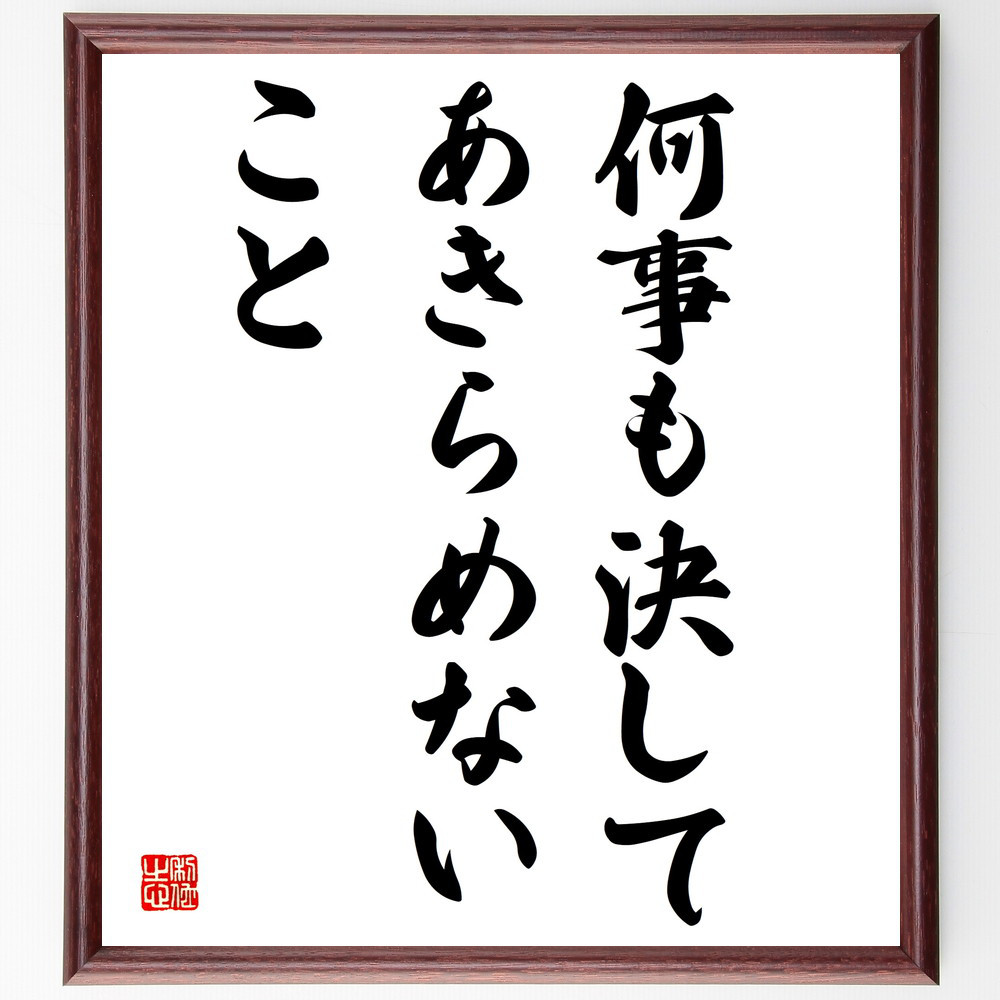 何事も決して
あきらめない
こと